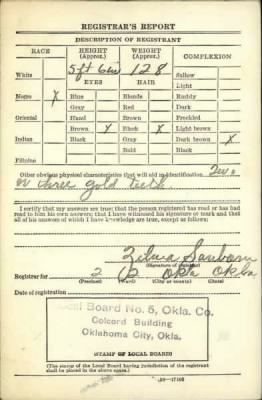 REGISTRAR'S REPORT
DESCRIPTION OF REGISTRANT
RACE HEIGHT (Approx.) WEIGHT (Approx.) COMPLEXION
5 ft 6 in 128
White EYES HAIR Sallow
Light
Negro X Blue Blonde Ruddy
Gray Red Dark
Oriental Hazel Brown Freckled
Brown X Black X Light brown
Indian Black Gray Dark brown X
Bald Black
Filipino
Other obvious physical characteristics that will aid in identification Two
or three gold teeth
I certify that my answers are true; that the person registered has read or has had
read to him his own answers; that I have witnessed his signature or mark and that
all of his answers of which I have knowledge are true, except as follows:
Zelma Sanborn
(Signature of registrar)
Registrar for 2 Okla Okla
(Precinct) (Ward) (City or county) (State)
Date of registration
Local Board No. 5, Okla. Co.
Colcord Building
Oklahoma City, Okla.
STAMP OF LOCAL BOARD
(The stamp of the Local Board having jurisdiction of the registrant
shall be placed in the above space.)